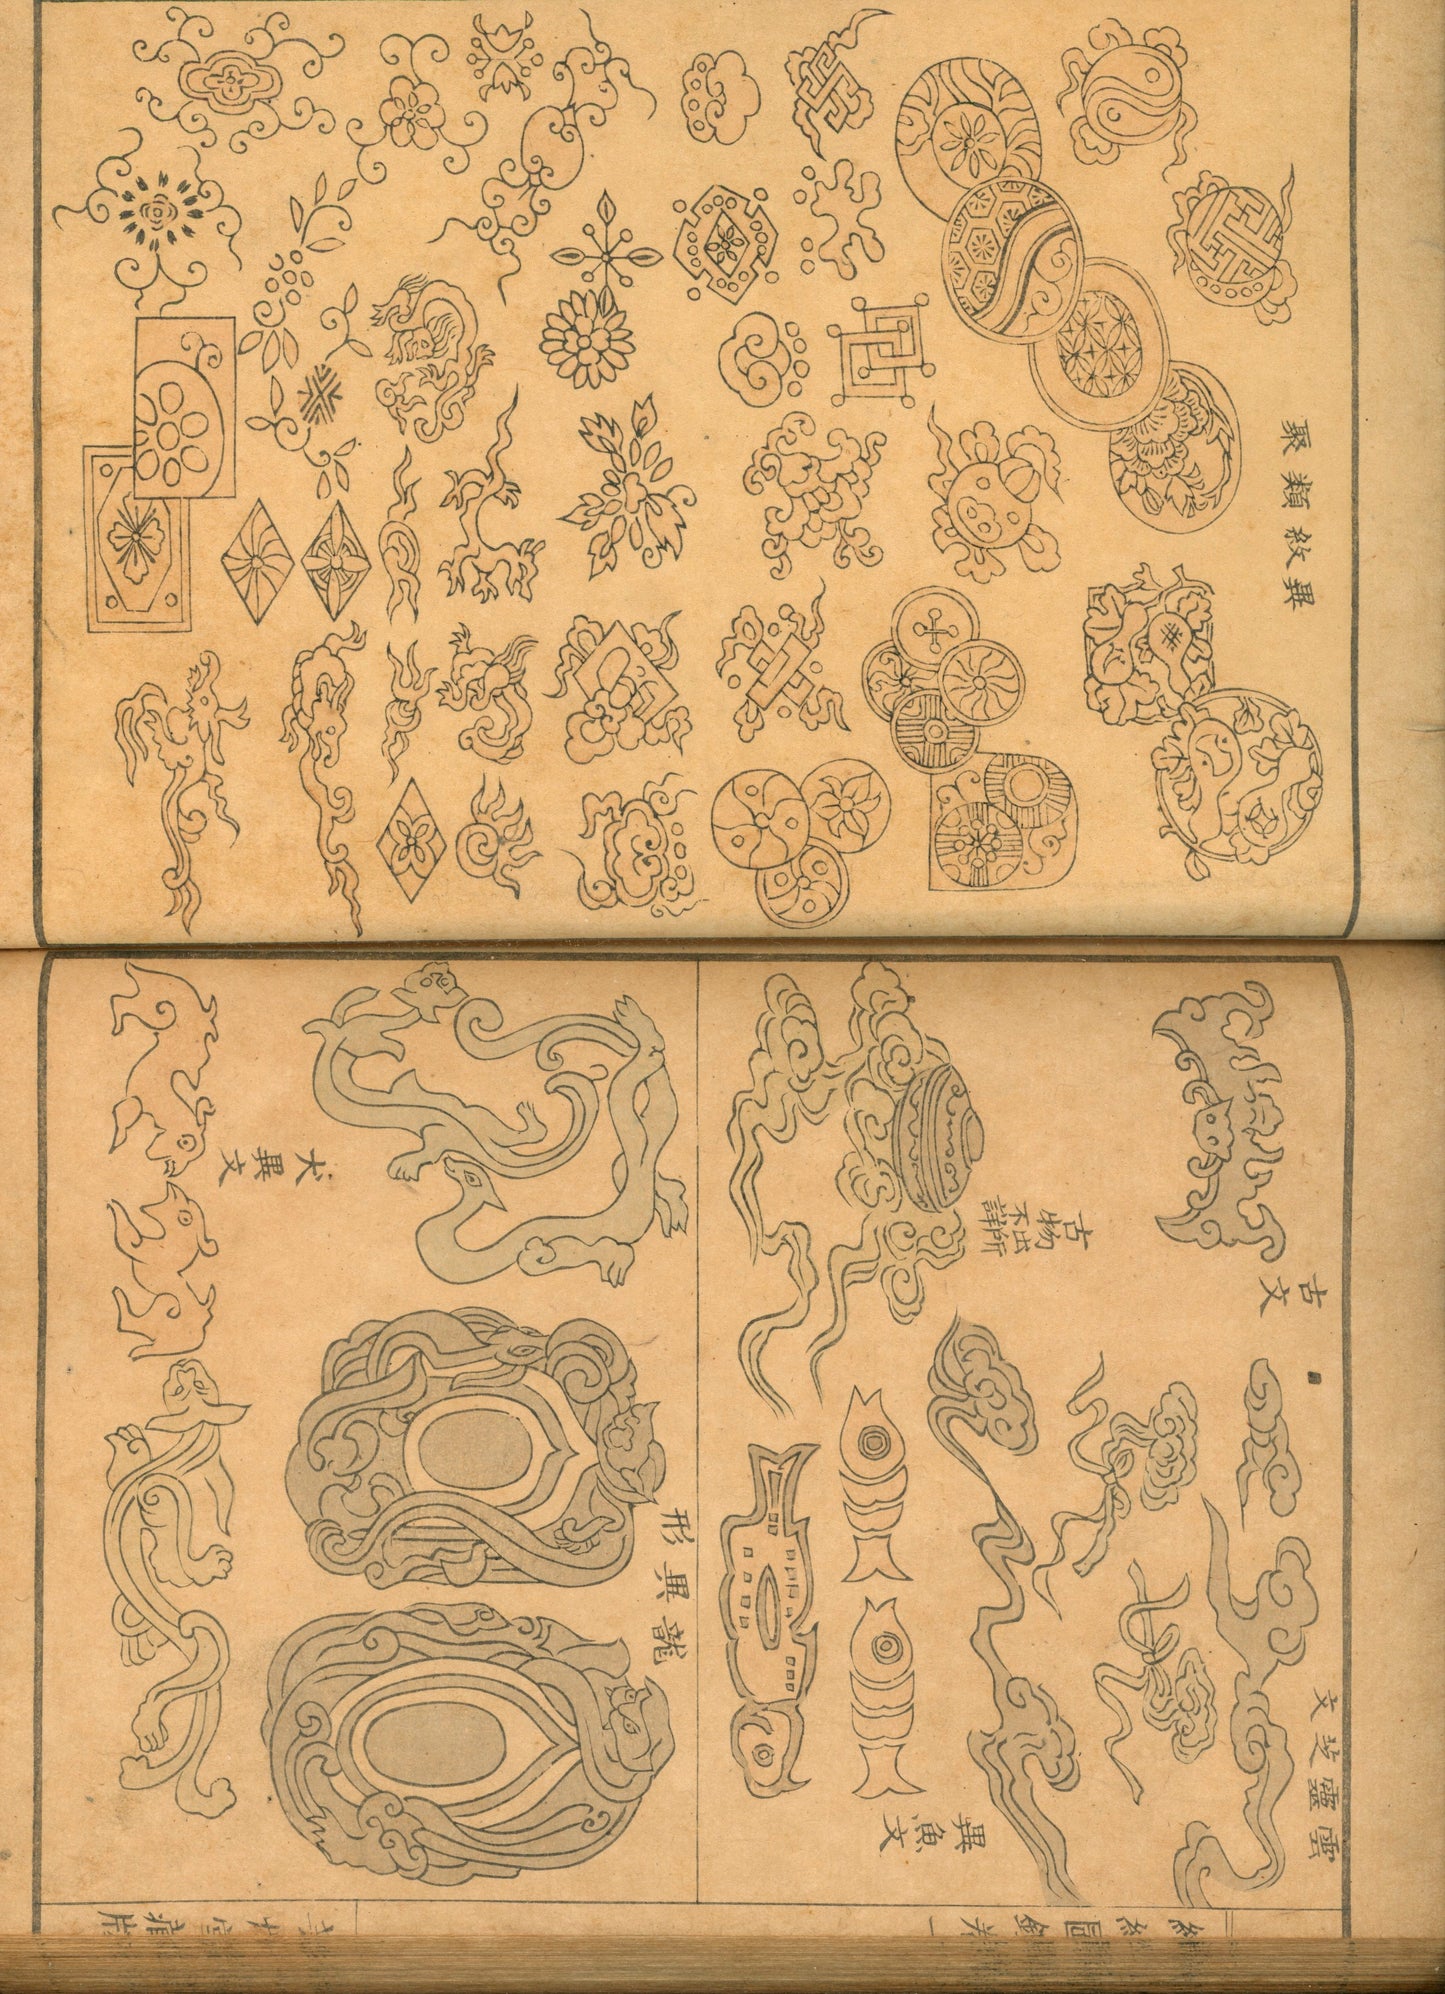 異紋類聚
古文
雲靈芝文
古物出所不詳
異魚文
龍異形
犬異文